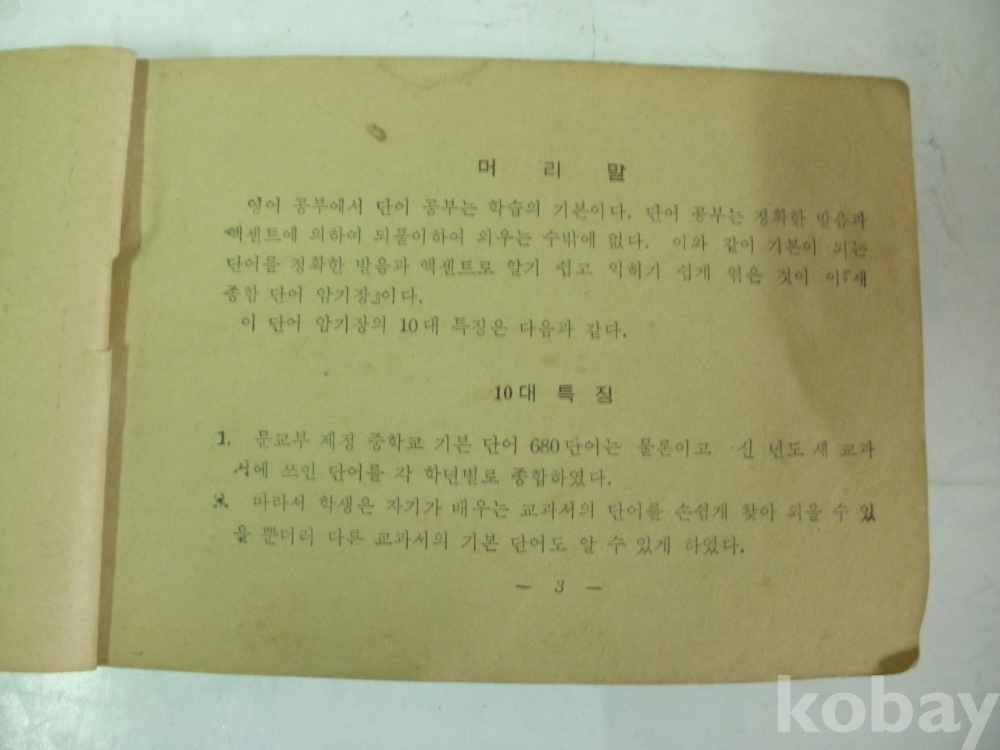 머 리 말
영어 공부에서 단어 공부는 학습의 기본이다. 단어 공부는 정확한 발음과
액센트에 의하여 되풀이하여 외우는 수밖에 없다. 이와 같이 기본이 되는
단어를 정확한 발음과 액센트로 알기 쉽고 익히기 쉽게 엮은 것이 이『새
종합 단어 암기장』이다.
이 단어 암기장의 10대 특징은 다음과 같다.
10대 특 징
1. 문교부 제정 중학교 기본 단어 680단어는 물론이고 신 년도 새 교과
서에 쓰인 단어를 각 학년별로 종합하였다.
2. 따라서 학생은 자기가 배우는 교과서의 단어를 손쉽게 찾아 외울 수 있
을 뿐더러 다른 교과서의 기본 단어도 알 수 있게 하였다.
— 3 —
kobay